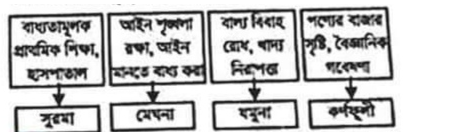 বাধ্যতামূলক
প্রাথমিক শিক্ষা,
হাসপাতাল
আইন শৃঙ্খলা
রক্ষা, আইন
মানতে বাধ্য করা
বাল্য বিবাহ
রোধ, খাদ্য
নিরাপত্তা
পণ্যের বাজার
সৃষ্টি, বৈজ্ঞানিক
গবেষণা
সুরমা
মেঘনা
যমুনা
কর্ণফুলী